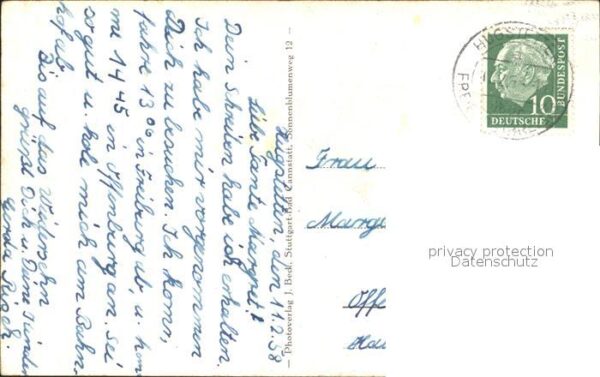 Hugstetten, den 11.2.58
Liebe Tante Margret!
Dein Schreiben habe ich erhalten.
Ich habe mir vorgenommen
Dich zu besuchen. Ich komm,
fahre 13 06 in Freiburg ab, u. kom
me 14 45 in Offenburg an. Sei
so gut u. hole mich am Bahn
hof ab.
Bis auf das Wiedersehn
grüsst Dich u. Deine Kinder
Gerda
— Photoverlag J. Beck, Stuttgart-Bad Cannstatt, Sonnenblumenweg 12 —
HUGST
DEUTSCHE
BUNDESPOST
10
Frau
Marge
Offe
Hau
privacy protection
Datenschutz